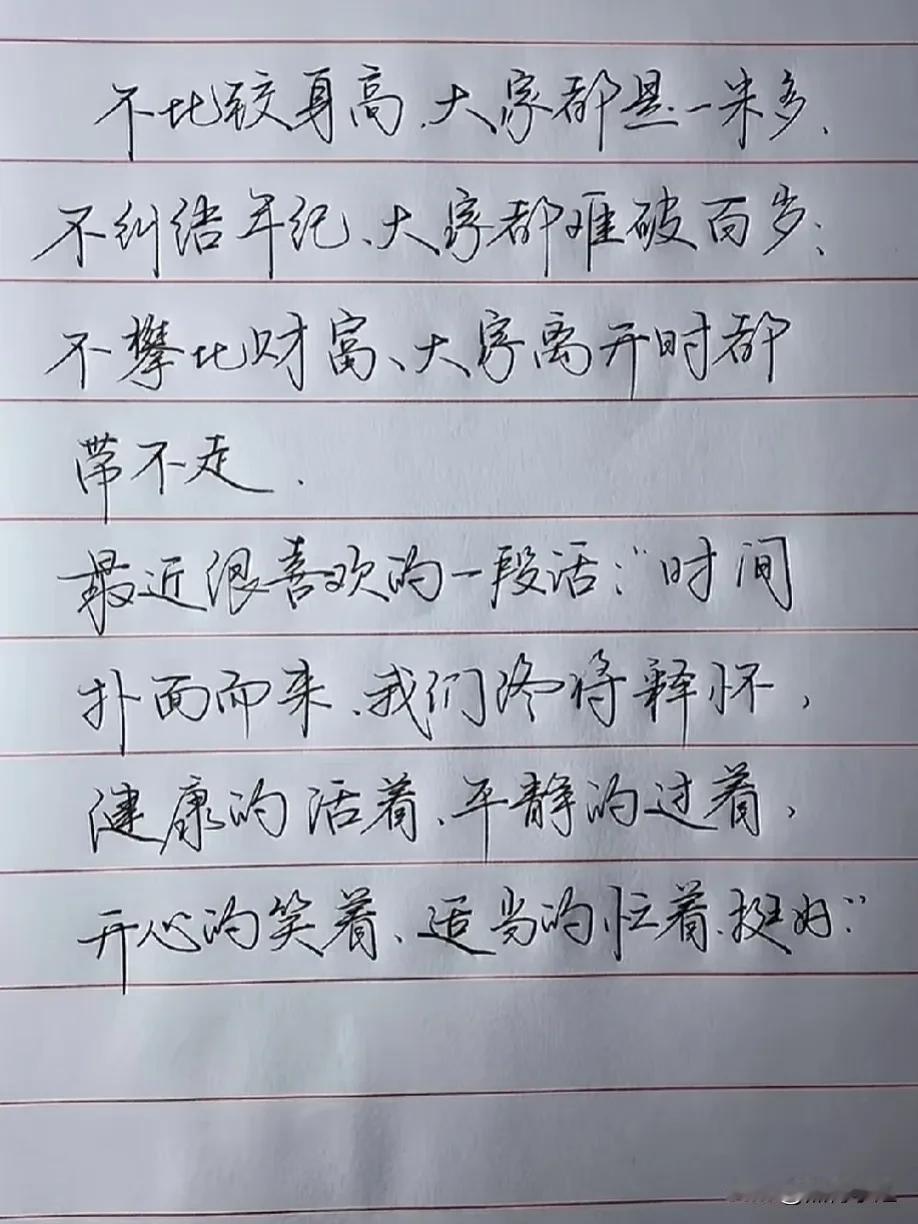 不比较身高、大家都是一米多、
不纠结年纪、大家都难破百岁；
不攀比财富、大家离开时都
带不走.
最近很喜欢的一段话："时间
扑面而来、我们终将释怀，
健康的活着、平静的过着，
开心的笑着、适当的忙着、挺好"